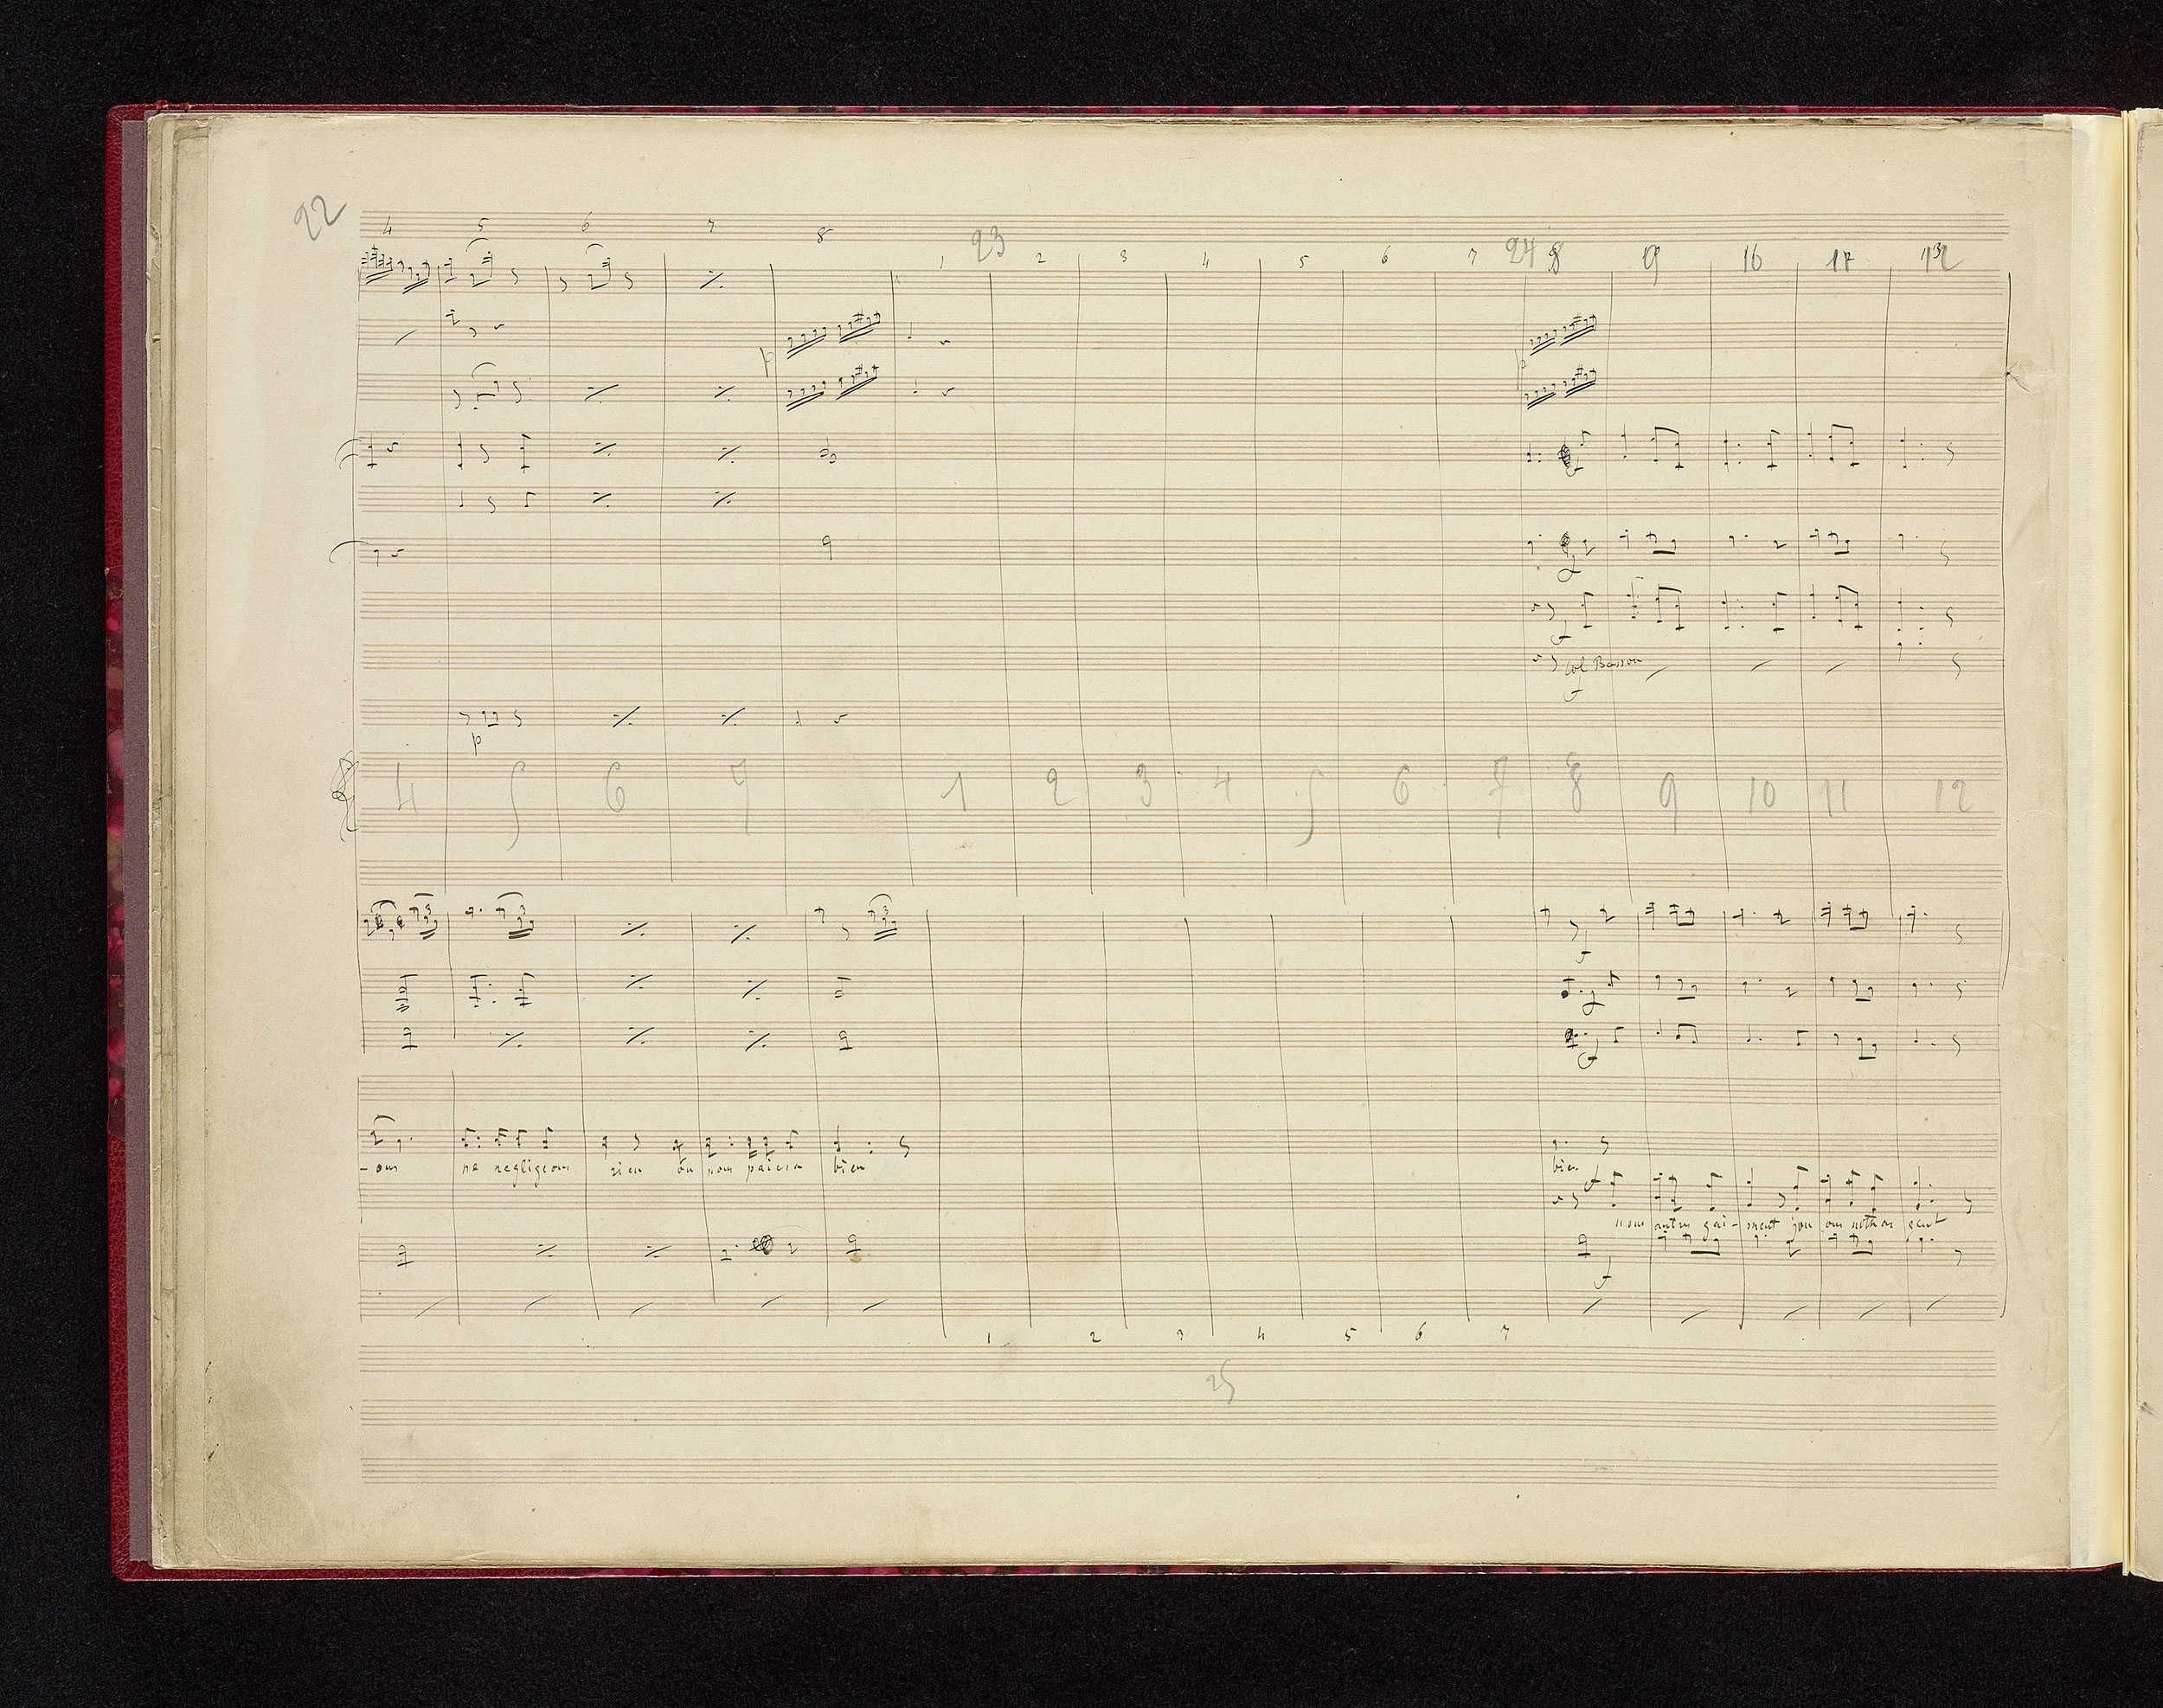 22
4 5 6 7 8
23
1 2 3 4 5 6 7
24
8
p p
col Basson
p
4 5 6 7 1 2 3 4 5 6 7 8 9 10 11 12
-ons ne negligeons rien on nous paiera bien
bien
nous autres gai-ment
1 2 3 4 5 6 7
25